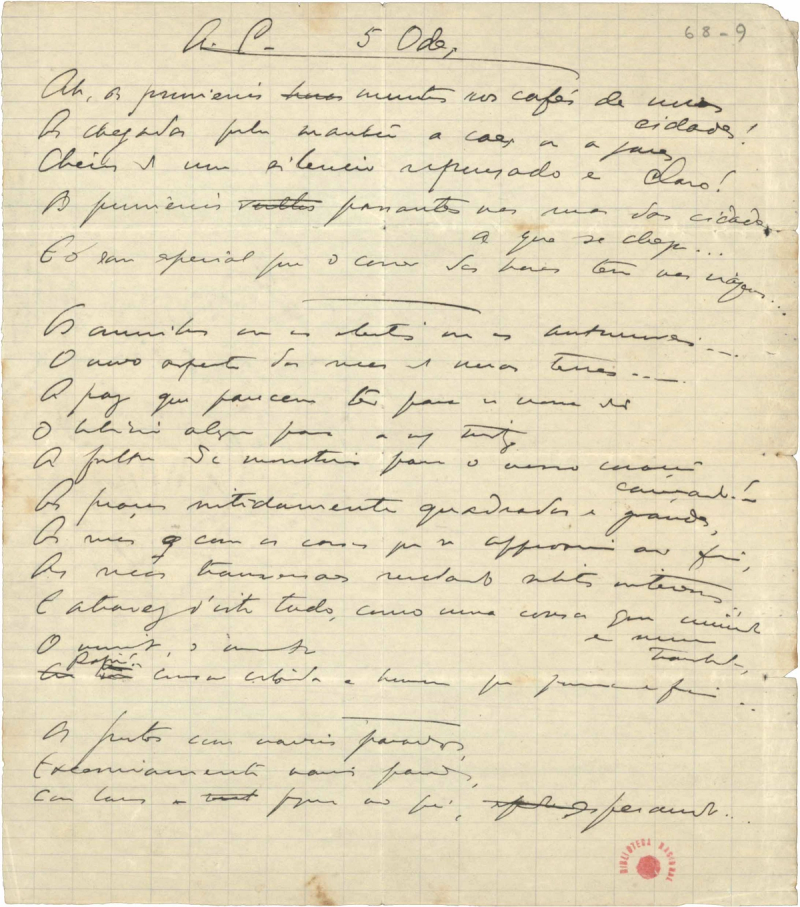 A. C. 5 Odes
68-9
Ah, os primeiros minutos nos cafés de novas
cidades!
As chegadas pela manhã a caes ou a gares
Cheios de um silencio repousado e claro!
Os primeiros passantes nas ruas das cidades
a que se chega...
E o som especial que o correr das horas tem nas viagens...
Os omnibus ou os electricos ou os automoveis...
O novo aspecto das ruas de novas terras...
A paz que parecem ter para a nossa dôr
O bulicio alegre para a nossa tristeza
A falta de monotonia para o nosso coração
cansado!...
As praças nitidamente quadradas e grandes,
As ruas com as casas que se approximam ao fim,
As ruas transversaes revelando subitos interesses,
E atravez d'isto tudo, como uma cousa que inunda
e nunca
transborda,
O movimento, o movimento
Rapida cousa colorida e humana que passa e fica...
Os portos com navios parados,
Excessivamente navios parados,
Com barcos pequenos ao pé, esperando...
BIBLIOTECA NACIONAL